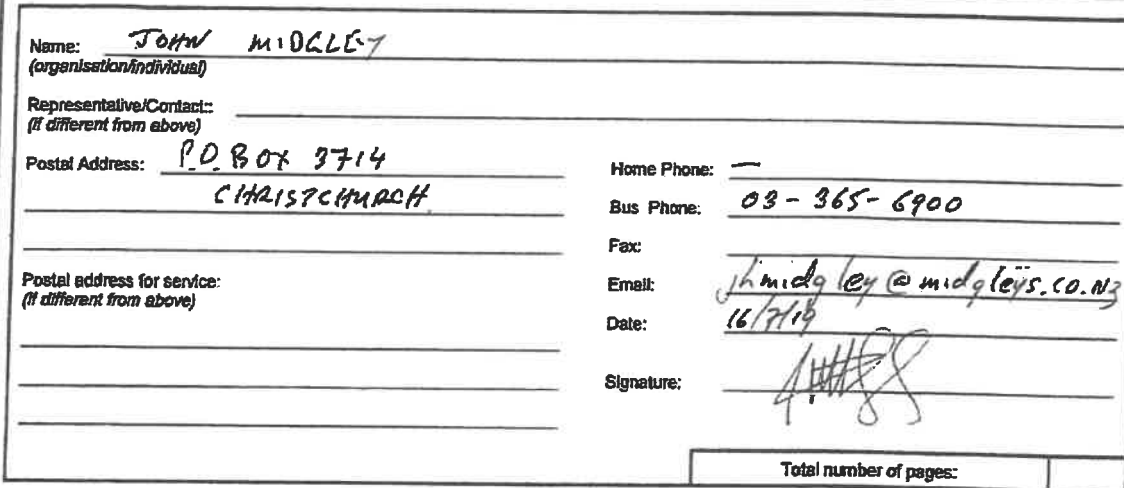 Name: JOHN MIDGLEY
(organisation/individual)
Representative/Contact::
(if different from above)
Postal Address: P.O. BOX 3714
CHRISTCHURCH
Postal address for service:
(if different from above)
Home Phone: —
Bus Phone: 03-365-6900
Fax:
Email: jhmidgley@midgleys.co.nz
Date: 16/7/19
Signature:
Total number of pages: